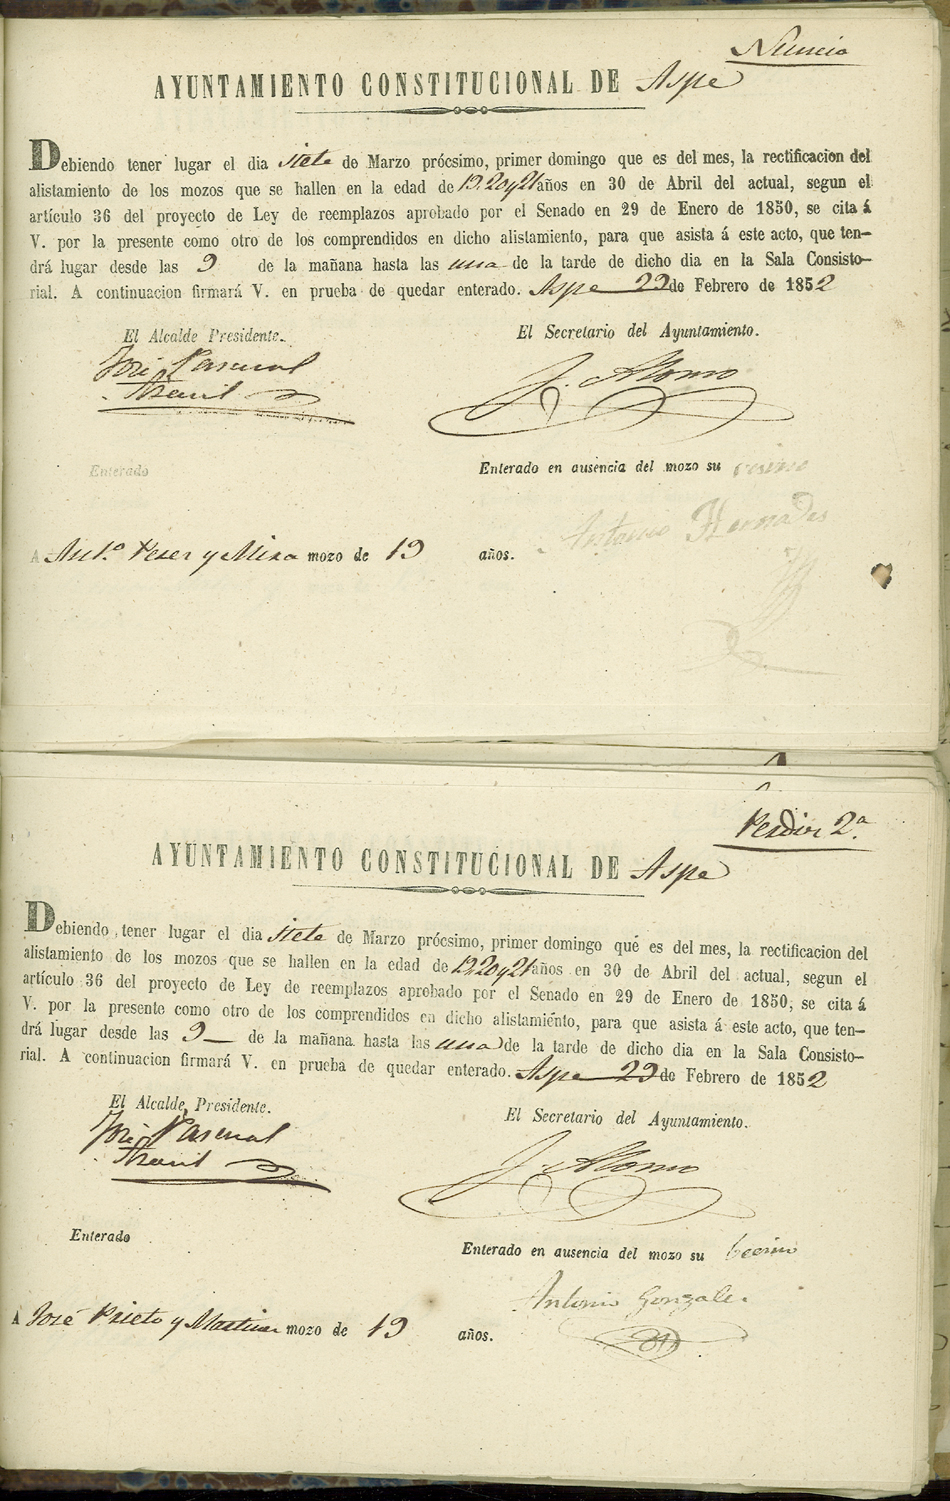 Nuncio
AYUNTAMIENTO CONSTITUCIONAL DE Aspe
Debiendo tener lugar el dia siete de Marzo prócsimo, primer domingo que es del mes, la rectificacion del
alistamiento de los mozos que se hallen en la edad de 19. 20 y 21 años en 30 de Abril del actual, segun el
artículo 36 del proyecto de Ley de reemplazos aprobado por el Senado en 29 de Enero de 1850, se cita á
V. por la presente como otro de los comprendidos en dicho alistamiento, para que asista á este acto, que ten-
drá lugar desde las 9 de la mañana hasta las una de la tarde de dicho dia en la Sala Consisto-
rial. A continuacion firmará V. en prueba de quedar enterado. Aspe 29 de Febrero de 1852
El Alcalde Presidente.
El Secretario del Ayuntamiento.
José Pascual
J. Alonso
Enterado
Enterado en ausencia del mozo su vecino
Antonio Hernades
A Ant.º Perer y Mira mozo de 19 años.
Perdiz 2ª
AYUNTAMIENTO CONSTITUCIONAL DE Aspe
Debiendo tener lugar el dia siete de Marzo prócsimo, primer domingo qué es del mes, la rectificacion del
alistamiento de los mozos que se hallen en la edad de 19. 20 y 21 años en 30 de Abril del actual, segun el
artículo 36 del proyecto de Ley de reemplazos aprobado por el Senado en 29 de Enero de 1850, se cita á
V. por la presente como otro de los comprendidos en dicho alistamiento, para que asista á este acto, que ten-
drá lugar desde las 9 de la mañana hasta las una de la tarde de dicho dia en la Sala Consisto-
rial. A continuacion firmará V. en prueba de quedar enterado. Aspe 29 de Febrero de 1852
El Alcalde Presidente.
El Secretario del Ayuntamiento.
José Pascual
J. Alonso
Enterado
Enterado en ausencia del mozo su becino
Antonio Gonzale
A José Prieto y Martinez mozo de 19 años.